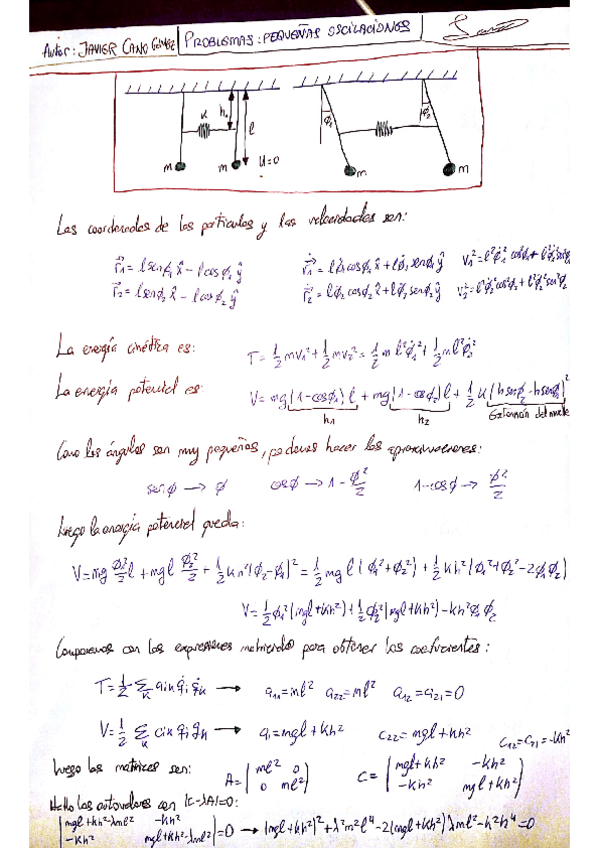 Autor: JAVIER CANO GÓMEZ
PROBLEMAS: PEQUEÑAS OSCILACIONES
K
h
l
m
m
U=0
ϕ₁
ϕ₂
m
m
Las coordenadas de las partículas y las velocidades son:
r⃗₁ = l senϕ₁ x̂ − l cosϕ₁ ŷ
r⃗₂ = l senϕ₂ x̂ − l cosϕ₂ ŷ
r⃗̇₁ = l ϕ̇₁ cosϕ₁ x̂ + l ϕ̇₁ senϕ₁ ŷ
r⃗̇₂ = l ϕ̇₂ cosϕ₂ x̂ + l ϕ̇₂ senϕ₂ ŷ
v₁² = l²ϕ̇₁² cos²ϕ₁ + l²ϕ̇₁² sen²ϕ₁
v₂² = l²ϕ̇₂² cos²ϕ₂ + l²ϕ̇₂² sen²ϕ₂
La energía cinética es: T = 1/2 mv₁² + 1/2 mv₂² = 1/2 m l²ϕ̇₁² + 1/2 m l²ϕ̇₂²
La energía potencial es: V = mg(1−cosϕ₁)l + mg(1−cosϕ₂)l + 1/2 K(h senϕ₂ − h senϕ₁)²
h₁
h₂
Como los ángulos son muy pequeños, podemos hacer las aproximaciones:
senϕ → ϕ cosϕ → 1 − ϕ²/2 1−cosϕ → ϕ²/2
Luego la energía potencial queda:
V = mg ϕ₁²/2 l + mgl ϕ₂²/2 + 1/2 K h²(ϕ₂−ϕ₁)² = 1/2 mgl(ϕ₁²+ϕ₂²) + 1/2 Kh²(ϕ₁²+ϕ₂²−2ϕ₁ϕ₂)
V = 1/2 ϕ₁²(mgl+Kh²) + 1/2 ϕ₂²(mgl+Kh²) − Kh²ϕ₁ϕ₂
Comparamos con las expresiones matriciales para obtener los coeficientes:
T = 1/2 Σ aᵢₖ q̇ᵢ q̇ₖ → a₁₁ = ml² a₂₂ = ml² a₁₂ = a₂₁ = 0
V = 1/2 Σ cᵢₖ qᵢ qₖ → = mgl + Kh² c₂₂ = mgl + Kh² c₁₂ = c₂₁ = −Kh²
Luego las matrices son: A = (ml² 0
0 ml²)
C = (mgl+Kh² −Kh²
−Kh² mgl+Kh²)
Hallo los autovalores con |C−λA|=0:
|mgl+Kh²−λml² −Kh²
−Kh² mgl+Kh²−λml²| = 0 → (mgl+Kh²)² + λ²m²l⁴ − 2(mgl+Kh²)λml² − K²h⁴ = 0